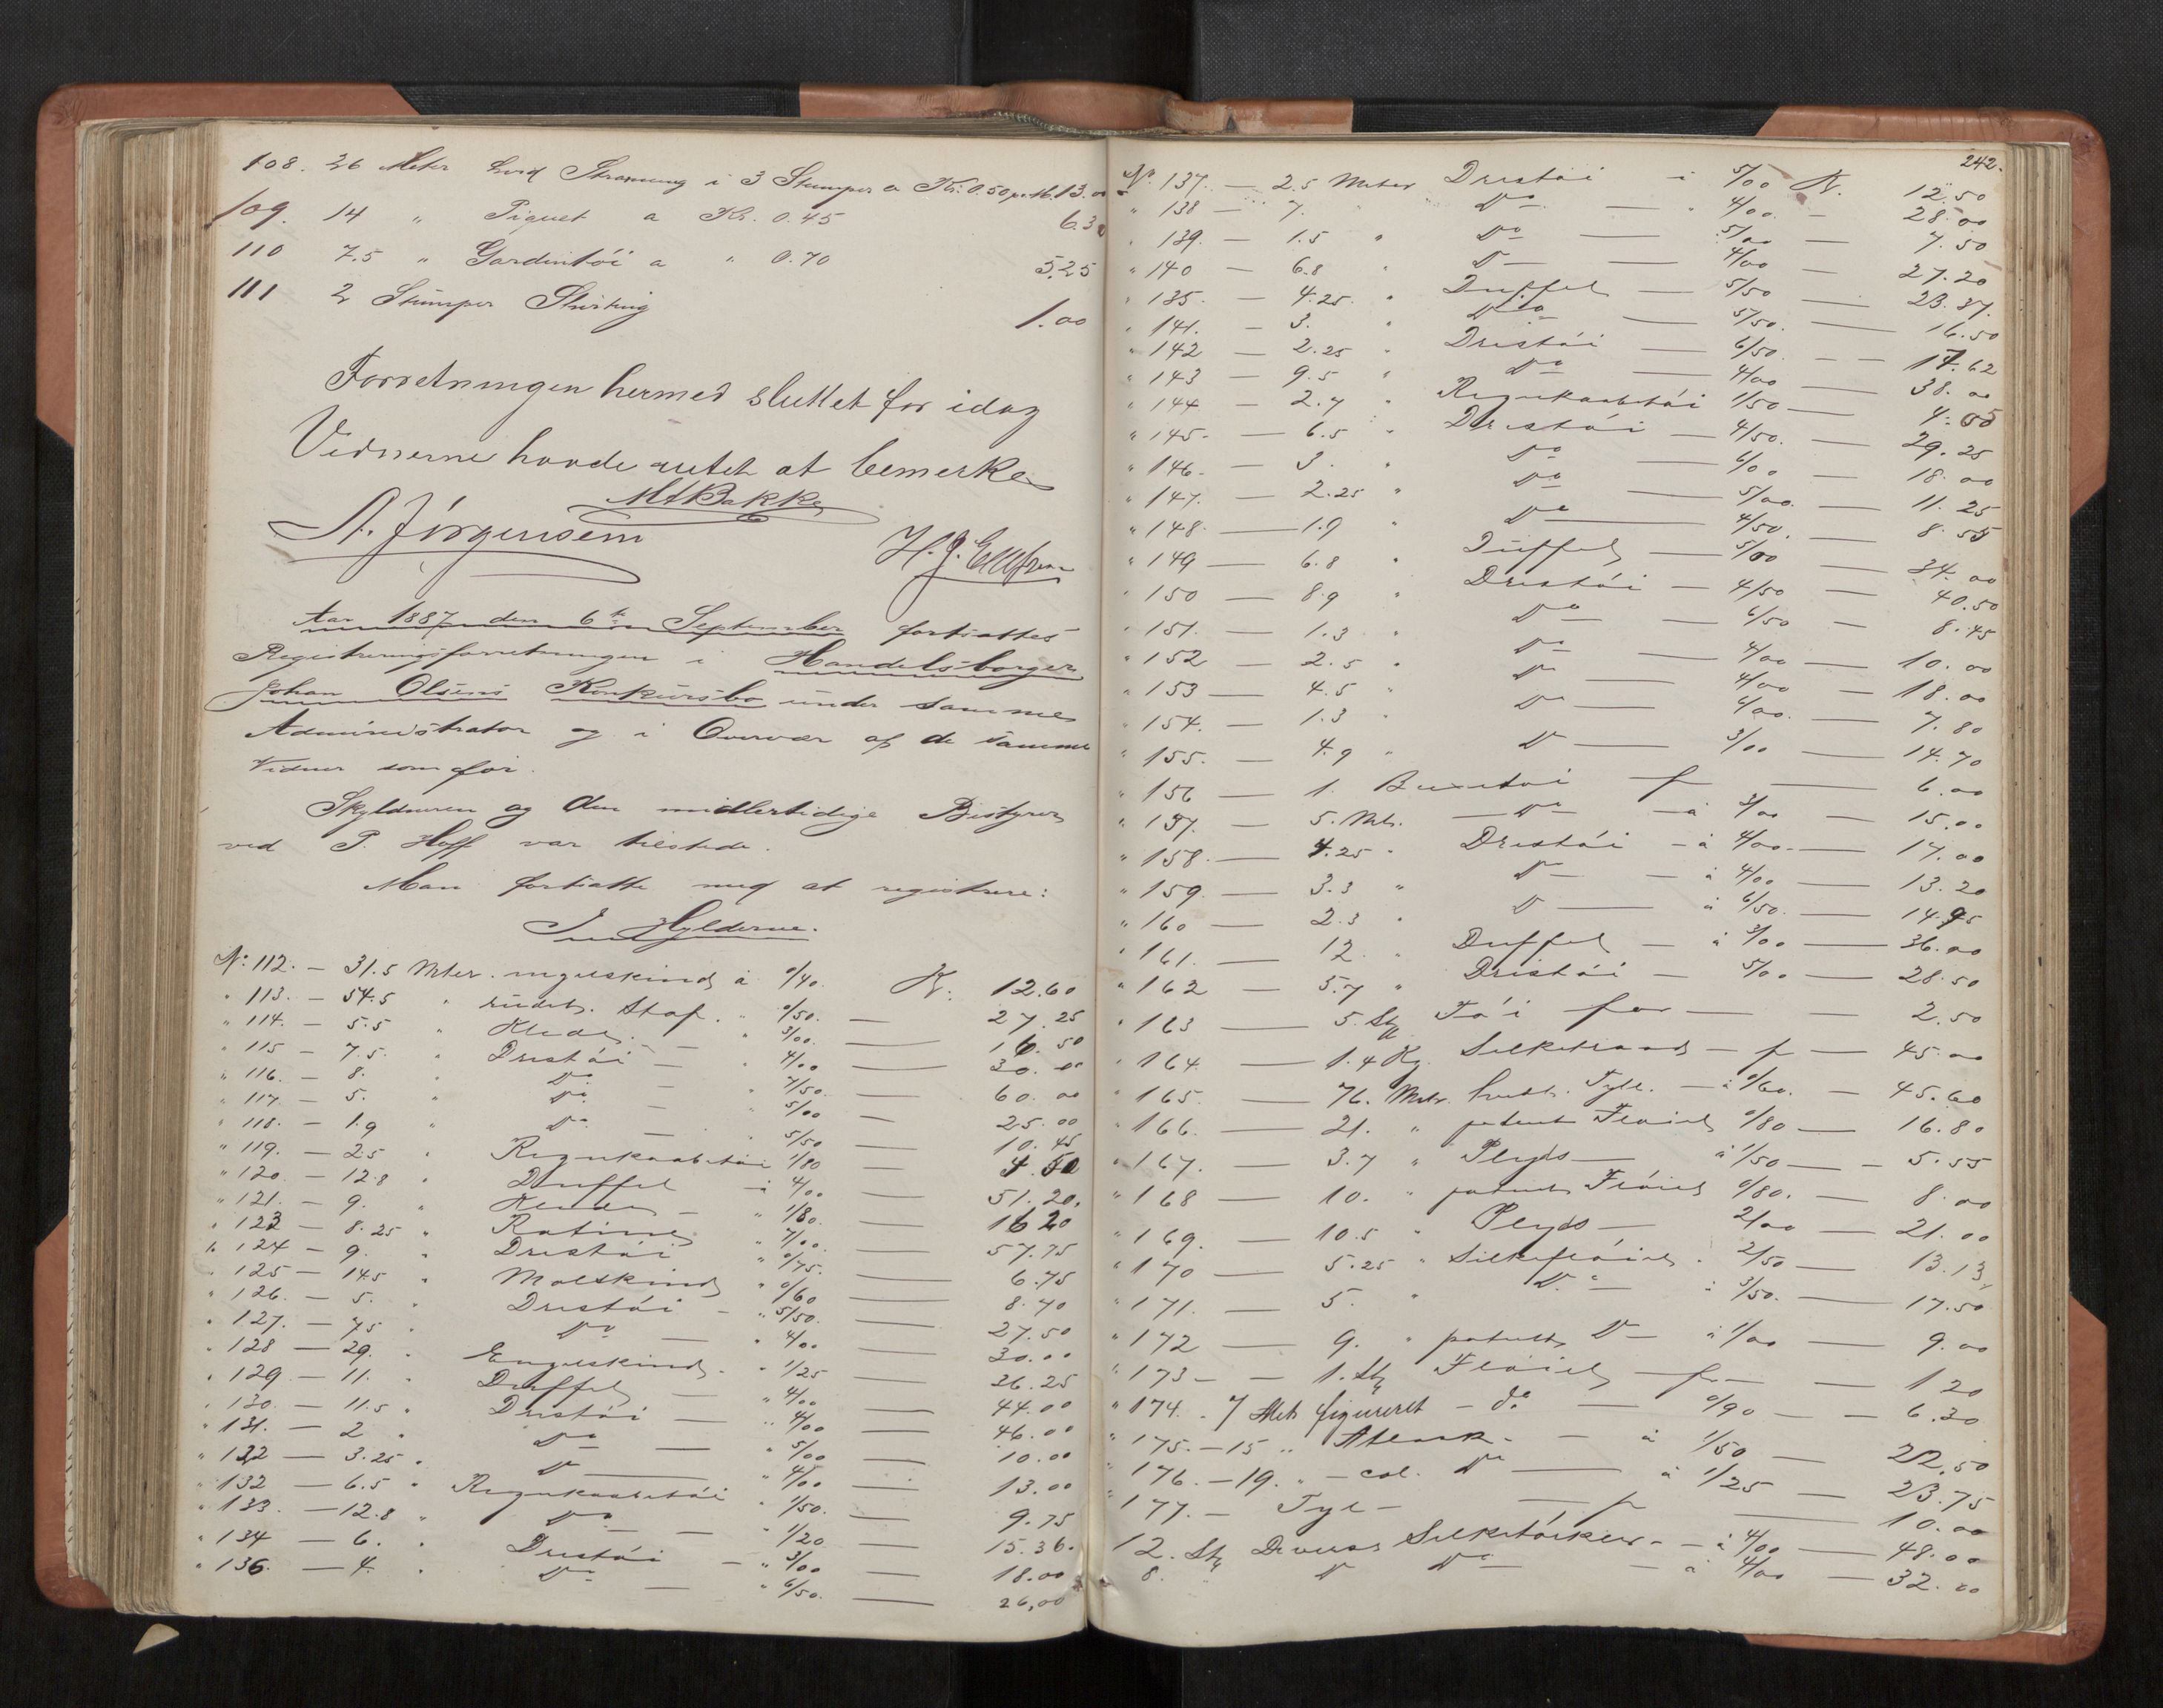 108. 26 Meter hvid Stramung i 3 Stumper a Kr. 0.50 pr. M. 13.00
109. 14 " Piquet a Kr. 0.45 6.30
110 7.5 " Gardintöi a " 0.70 5.25
111 2 Stumper Shirting 1.00
Forretningen hermed sluttet for idag
Vidnerne havde intet at bemerke
MABakke
A. Jörgensen H. J.
Aar 1887 den 6te September fortsattes
Registreringsforretningen i Handelsborger
Johan Olsens Konkursbo under samme
Administrator og i Overvær af de samme
Vidner som før.
Skyldneren og den midlertidige Bestyrer
ved P. Hoff var tilstede.
Man fortsatte med at registrere:
I Hylderne.
No: 112. — 31.5 Meter. engelskind à 0/40. Kr. 12.60
" 113. — 54.5 " rudet. Stof. " 0/50. — 27.25
" 114. — 5.5 " Klæde. — " 3/00. — 16.50
" 115 — 7.5. " Drestöi — " 4/00 — 30.00
" 116. — 8. " Do — " 7/50. — 60.00
" 117 — 5. " Do — " 5/00 — 25.00
" 118. — 1.9 " Do — " 5/50 — 10.45
" 119. — 2.5 " Regnkaabetöi 1/80 — 4.50
" 120. — 12.8 " Duffel — à 4/00 — 51.20.
" 121. — 9. " Klæde — " 1/80. — 16.20
" 123 — 8.25 " Ratine " 7/00. — 57.75
" 124 — 9. " Drestöi " 0/75. — 6.75
" 125 — 14.5 " Molskind " 0/60 — 8.70
" 126. — 5. " Drestöi — " 5/50. — 27.50
" 127. — 7.5 " Do — " 4/00 — 30.00
" 128 — 29. " Engelskind. " 1/25 — 36.25
" 129 — 11. " Duffel — " 4/00 — 44.00
" 130. — 11.5 " Drestöi — " 4/00 — 46.00
" 131. — 2 " Do — " 5/00 — 10.00
" 132 — 3.25 " Do — " 4/00 — 13.00
" 132 — 6.5 " Regnkaabetöi " 1/50. — 9.75
" 133. — 12.8 " Do — " 1/20 — 15.36.
" 134 — 6. " Drestöi — " 3/00 — 18.00
" 136. — 4. " Do — " 6/50. — 26,00
242.
No. 137. — 2.5 Meter Drestöi — à 5/00 Kr. 12.50
" 138 — 7. " Do — " 4/00. — 28.00
" 139. — 1.5 " Do — 5/00 — 7.50
" 140 — 6.8 " Do — 4/00 — 27.20
" 135. — 4.25. " Duffel — 5/50 — 23.37.
" 141. — 3. " Do — 5/50. — 16.50
" 142 — 2.25 " Drestöi — 6/50. — 14.62
" 143 — 9.5 " Do — 4/00 — 38.00
" 144 — 2.7 " Regnkaabetöi 1/50 — 4.05
" 145. — 6.5 " Drestöi — 4/50. — 29.25
" 146. — 3. " Do — 6/00 — 18.00
" 147. — 2.25 " Do — 5/00. — 11.25
" 148. — 1.9 " Do — 4/50. — 8.55
" 149 — 6.8 " Duffel — 5/00 — 34.00
" 150 — 8.9 " Drestöi — 4/50 — 40.50
" 151. — 1.3 " Do — 6/50 — 8.45
" 152 — 2.5 " Do — 4/00 — 10.00
" 153 — 4.5 " Do — 4/00 — 18.00
" 154. — 1.3 " Do — 6/00. — 7.80
" 155. — 4.9 " Do — 3/00 — 14.70
" 156 — 1. Buxetöi — f — 6.00
" 157. — 5. Mtr. — Do — à 3/00 — 15.00
" 158. — 4.25 " Drestöi — à 4/00. — 17.00
" 159. — 3.3 " Do — à 4/00 — 13.20
" 160 — 2.3 " Do — à 6/50. — 14.95
" 161. — 12. " Duffel — à 3/00 — 36.00
" 162 — 5.7 " Drestöi — 5/00 — 28.50
" 163 — 5. Stk Töi for — 2.50
" 164 — 1.4 Kg. Silketraad — f — 45.00
" 165. — 76. Metr. hvidt. Tyll. — à 0/60. — 45.60
" 166. — 21. " patent Flöiel 0/80 — 16.80
" 167. — 3.7 " Plyds — à 1/50 — 5.55
" 168 — 10. " patent Flöiel 0/80. — 8.00
" 169. — 10.5 " Plyds — 2/00 — 21.00
" 170 — 5.25 " Silkeflöiel. " 2/50 — 13.13
" 171. — 5. " Do. — à 3/50. — 17.50
" 172 — 9. " patent Do — à 1/00 — 9.00
" 173 — 1. Stk Flöiel — for — 1.20
" 174. 7 Metr figureret — do — 0/90 — 6.30
" 175. — 15 " Atlask. — à 1/50 — 22.50
" 176. — 19. " — col. Do — à 1/25 — 23.75
" 177. — Tyl — f — 10.00
12. Stk Diverse Silketörklær — à 4/00 — 48.00
8. " Do Do — à 4/00 — 32.00